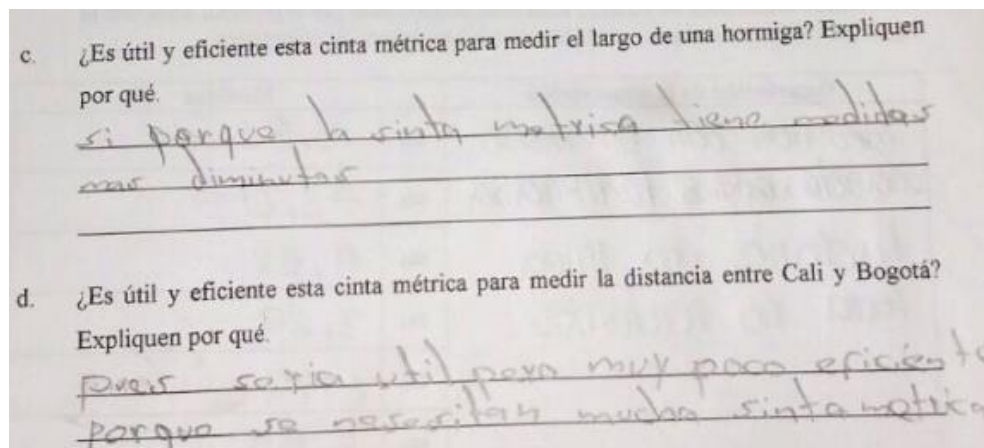 c. ¿Es útil y eficiente esta cinta métrica para medir el largo de una hormiga? Expliquen
por qué.
si porque la sinta metrisa tiene medidas
mas diminutas
d. ¿Es útil y eficiente esta cinta métrica para medir la distancia entre Cali y Bogotá?
Expliquen por qué.
pues seria util pero muy poco eficiente
porque se nesesitan mucha sinta metrica